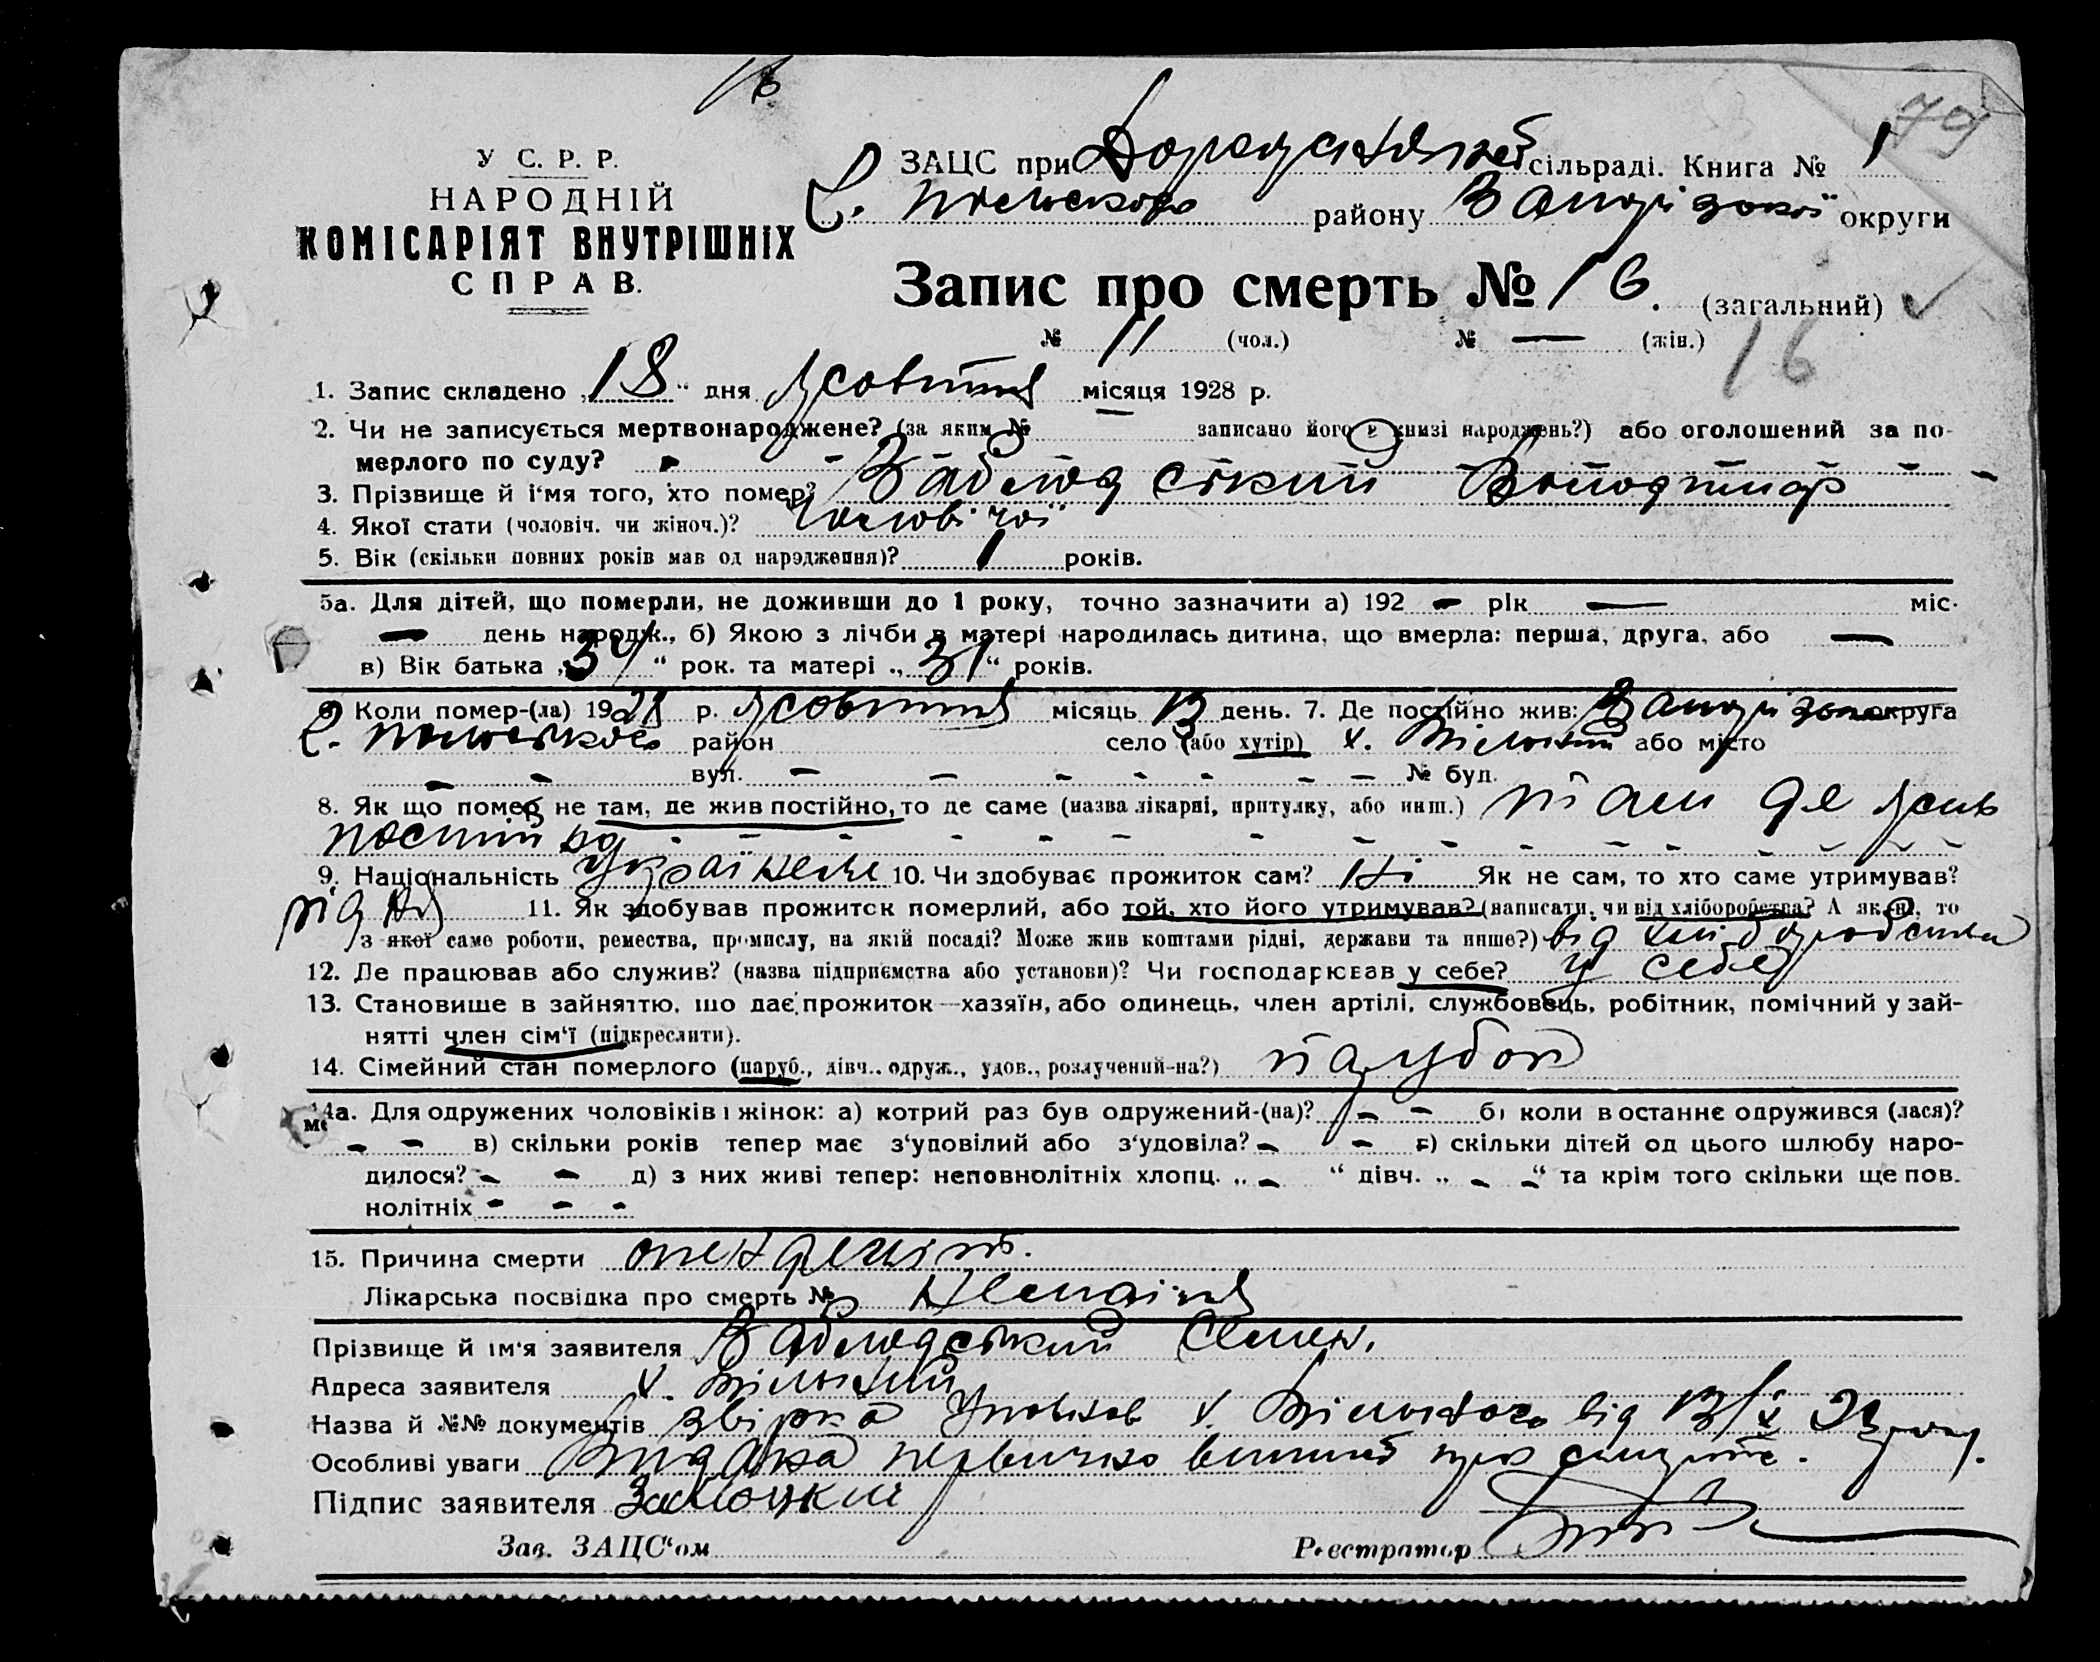 16
79
У С. Р. Р.
НАРОДНІЙ
КОМІСАРІЯТ ВНУТРІШНІХ
СПРАВ.
ЗАЦС при сільраді. Книга № 1
району Запорізької округи
Запис про смерть № 16. (загальний)
№ 11 (чол.) № — (жін.)
16
1. Запис складено „18“ дня жовтня місяця 1928 р.
2. Чи не записується мертвонароджене? (за яким № записано його в книзі народжень?) або оголошений за по-
мерлого по суду? -
3. Прізвище й і‘мя того, хто помер? Заблодський Володимир
4. Якої стати (чоловіч. чи жіноч.)? Чоловічої
5. Вік (скільки повних років мав од народження)? 1 років.
5а. Для дітей, що померли, не доживши до 1 року, точно зазначити а) 192 — рік — міс.
— день народж., б) Якою з лічби в матері народилась дитина, що вмерла: перша, друга, або —
в) Вік батька „34“ рок. та матері „31“ років.
6. Коли помер-(ла) 1928 р. жовтня місяць 13 день. 7. Де постійно жив: Запорізька округа
район село (або хутір) х. Вільний або місто
— — вул. — — — — — — — № буд.
8. Як що помер не там, де жив постійно, то де саме (назва лікарні, притулку, або инш.) там де жив
постійно
9. Національність українець 10. Чи здобуває прожиток сам? Ні Як не сам, то хто саме утримував?
рідня 11. Як здобував прожиток померлий, або той, хто його утримував? (написати, чи від хліборобства? А як ні, то
з якої саме роботи, ремества, промислу, на якій посаді? Може жив коштами рідні, держави та инше?) від хліборобства
12. Де працював або служив? (назва підприємства або установи)? Чи господарював у себе? у себе
13. Становище в зайняттю, що дає прожиток—хазяїн, або одинець, член артілі, службовець, робітник, помічний у зай-
нятті член сім‘ї (підкреслити).
14. Сімейний стан померлого (паруб., дівч., одруж., удов., розлучений-на?) парубок
14а. Для одружених чоловіків і жінок: а) котрий раз був одружений-(на)? — — б) коли востаннє одружився (лася)?
— — в) скільки років тепер має з‘уповілий або з‘удовіла? — — г) скільки дітей од цього шлюбу наро-
дилося? — — д) з них живі тепер: неповнолітніх хлопц. „ — “ дівч. „ — — “ та крім того скільки ще пов.
нолітніх — — —
15. Причина смерти
Лікарська посвідка про смерть № Немаіня
Прізвище й ім‘я заявителя Заблодський Семен.
Адреса заявителя х. Вільний
Назва й №№ документів х. Вільного від 13/X 28 року.
Особливі уваги Видана первичну про смерть.
Підпис заявителя
Зав. ЗАЦС‘ом Реєстратор